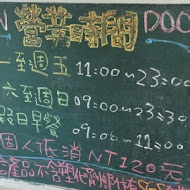 N 營業時間 DOC
一至週五 11:00~23:00
六至週日 09:00~23:30
假日早餐 09:00~11:00
個人低消NT120元